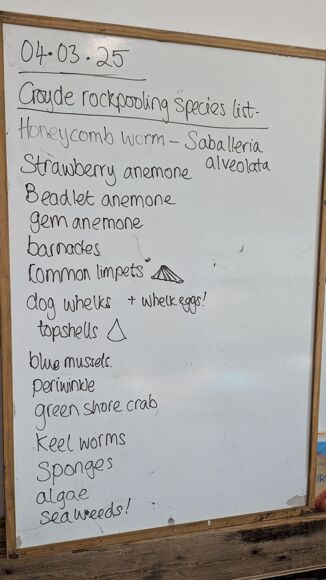 04.03.25
Croyde rockpooling species list-
Honeycomb worm - Saballeria
alveolata
Strawberry anemone
Beadlet anemone
gem anemone
barnacles
Common limpets
dog whelks + whelk eggs!
topshells
blue mussels.
periwinkle
green shore crab
Keel worms
Sponges
algae
seaweeds!